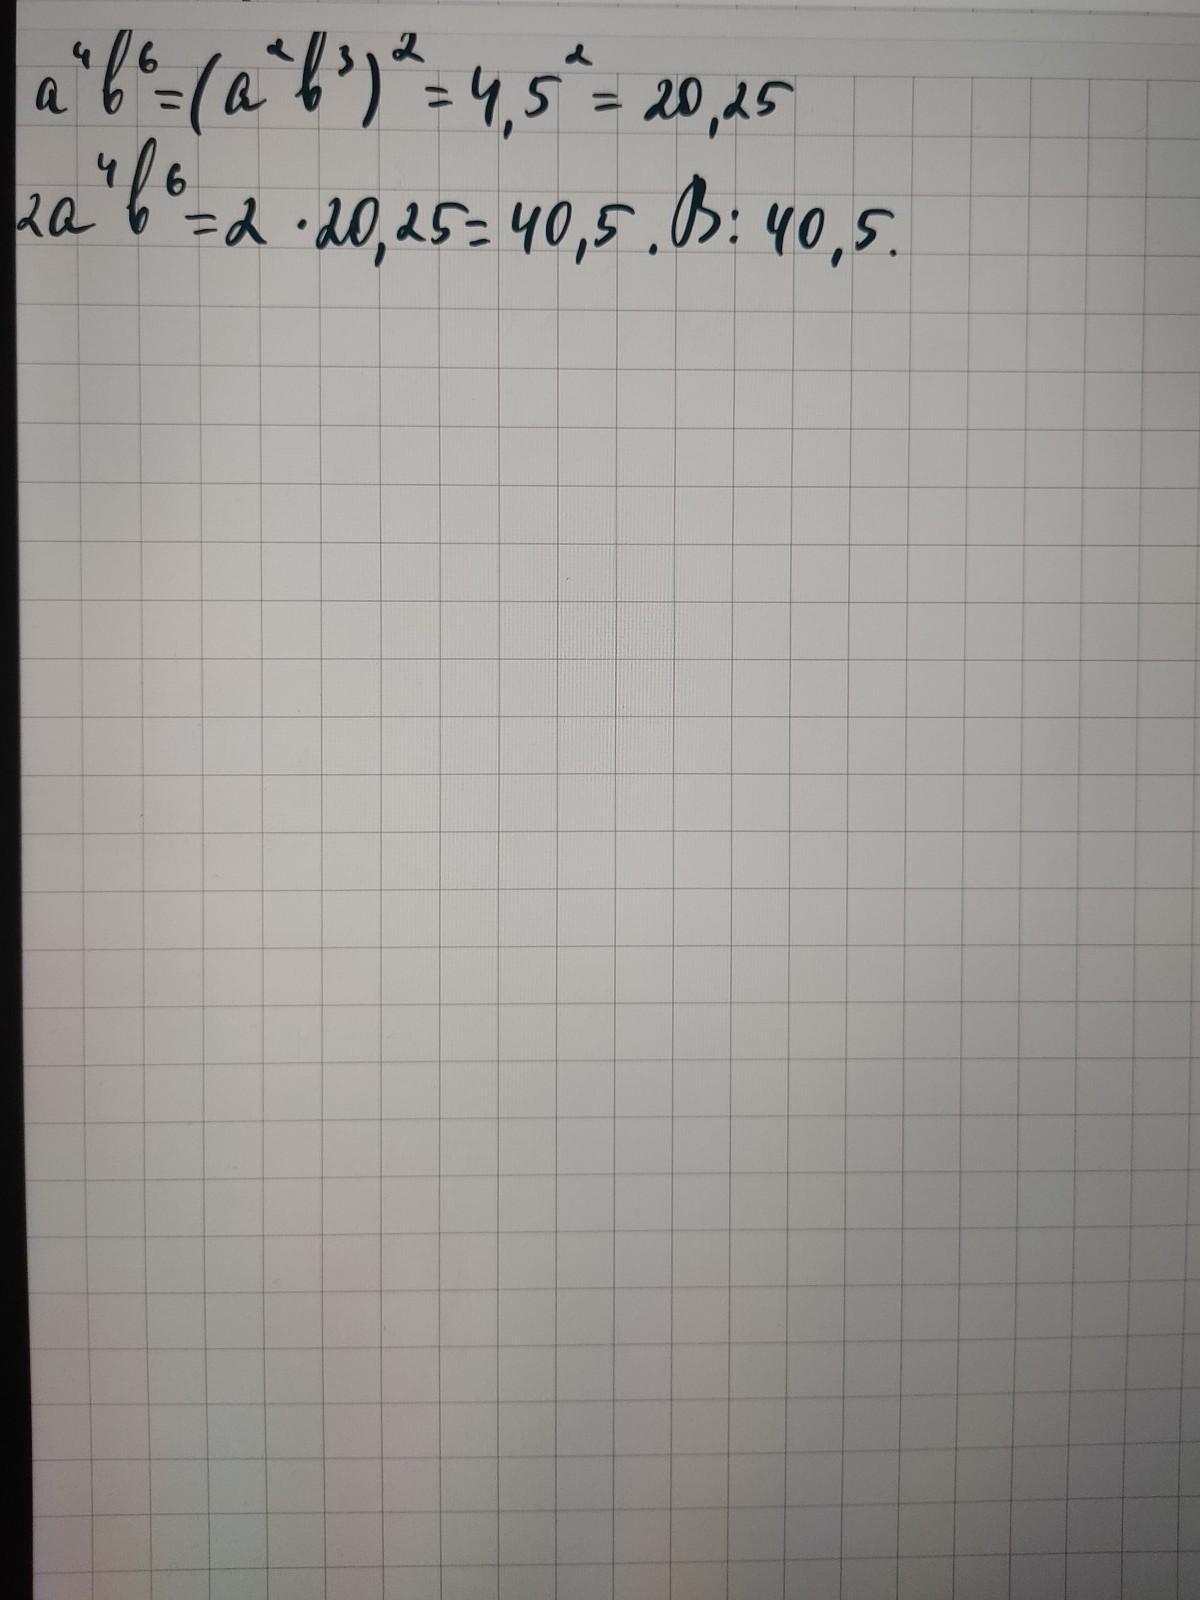 a⁴b⁶=(a²b³)²=4,5²=20,25
2a⁴b⁶=2·20,25=40,5. В: 40,5.